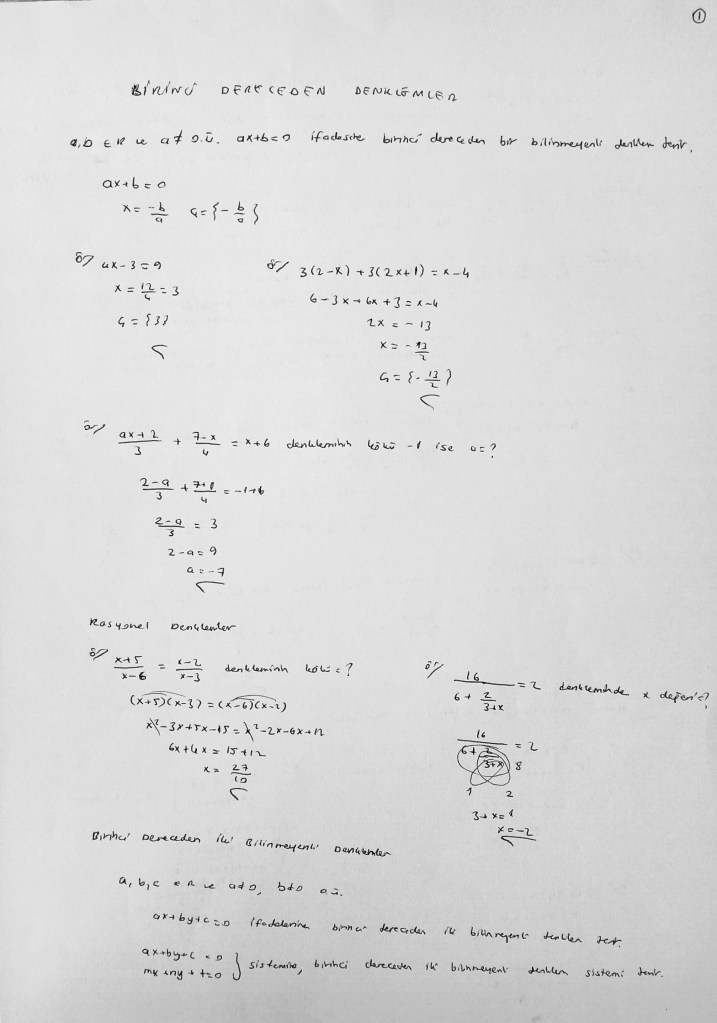 1
BİRİNCİ DERECEDEN DENKLEMLER
a,b ∈ R ve a ≠ 0 o.ü. ax+b=0 ifadesine birinci dereceden bir bilinmeyenli denklem denir.
ax+b=0
x = -b/a Ç={-b/a}
ör/ 4x-3=9
x = 12/4 = 3
Ç = {3}
ör/ 3(2-x) + 3(2x+1) = x-4
6-3x+6x+3 = x-4
2x = -13
x = -13/2
Ç = {-13/2}
ör/ (ax+2)/3 + (7-x)/4 = x+6 denkleminin kökü -1 ise a=?
(2-a)/3 + (7+1)/4 = -1+6
(2-a)/3 = 3
2-a = 9
a = -7
Rasyonel Denklemler
ör/ (x+5)/(x-6) = (x-2)/(x-3) denkleminin kökü=?
(x+5)(x-3) = (x-6)(x-2)
x²-3x+5x-15 = x²-2x-6x+12
6x+4x = 15+12
x = 27/10
ör/ 16/(6+2/(3+x)) = 2 denkleminde x değeri=?
16/(6+2/(3+x)) = 2
8
1 2
3+x=1
x=-2
Birinci Dereceden İki Bilinmeyenli Denklemler
a,b,c ∈ R ve a≠0, b≠0 o.ü.
ax+by+c=0 ifadelerine birinci dereceden iki bilinmeyenli denklem denir.
ax+by+c=0
mx+ny+t=0 } sistemine, birinci dereceden iki bilinmeyenli denklem sistemi denir.